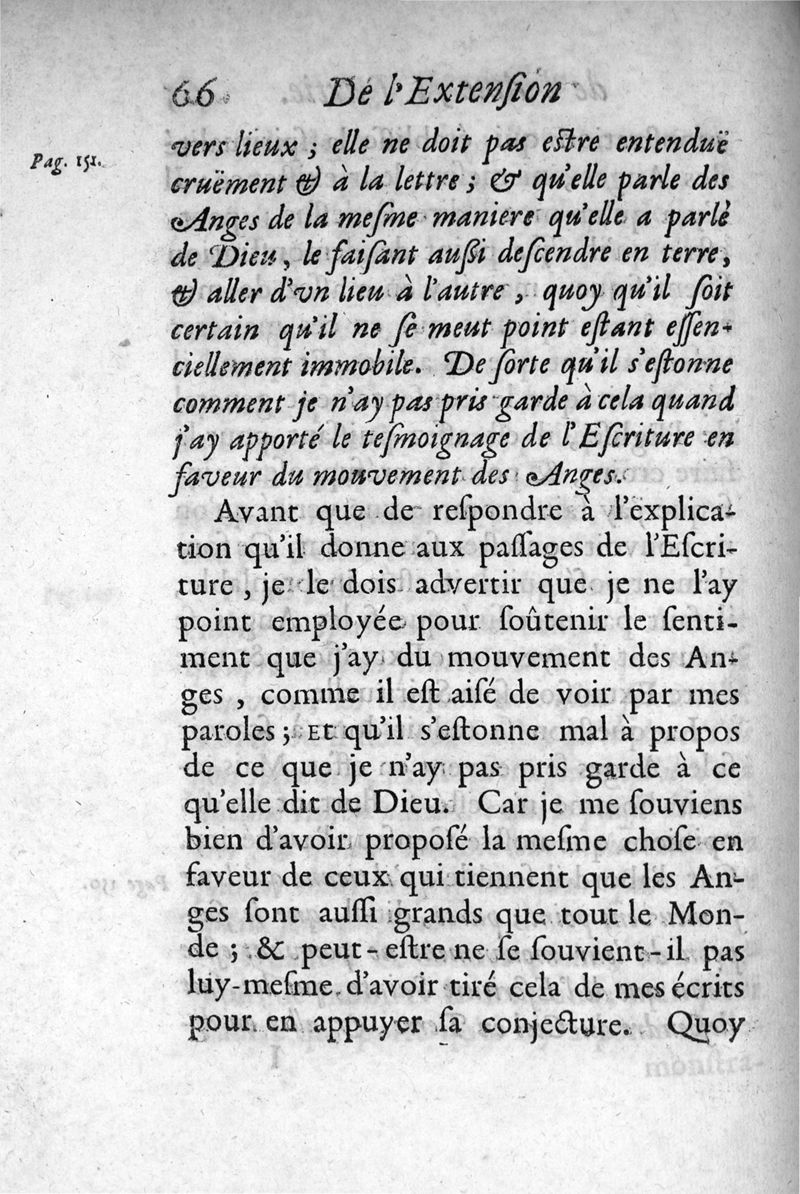 66 De l'Extenſion
vers lieux ; elle ne doit pas eſtre entenduë
Pag. 151.
cruëment & à la lettre ; & qu'elle parle des
Anges de la meſme maniere qu'elle a parlé
de Dieu, le faiſant auſſi deſcendre en terre,
& aller d'vn lieu à l'autre, quoy qu'il ſoit
certain qu'il ne ſe meut point eſtant eſſen-
ciellement immobile. De ſorte qu'il s'eſtonne
comment je n'ay pas pris garde à cela quand
j'ay apporté le teſmoignage de l'Eſcriture en
faveur du mouvement des Anges.
Avant que de reſpondre à l'explica-
tion qu'il donne aux paſſages de l'Eſcri-
ture, je le dois advertir que je ne l'ay
point employée pour ſoûtenir le ſenti-
ment que j'ay du mouvement des An-
ges, comme il eſt aiſé de voir par mes
paroles ; Et qu'il s'eſtonne mal à propos
de ce que je n'ay pas pris garde à ce
qu'elle dit de Dieu. Car je me ſouviens
bien d'avoir propoſé la meſme choſe en
faveur de ceux qui tiennent que les An-
ges ſont auſſi grands que tout le Mon-
de ; & peut-eſtre ne ſe ſouvient-il pas
luy-meſme d'avoir tiré cela de mes écrits
pour en appuyer ſa conjecture. Quoy